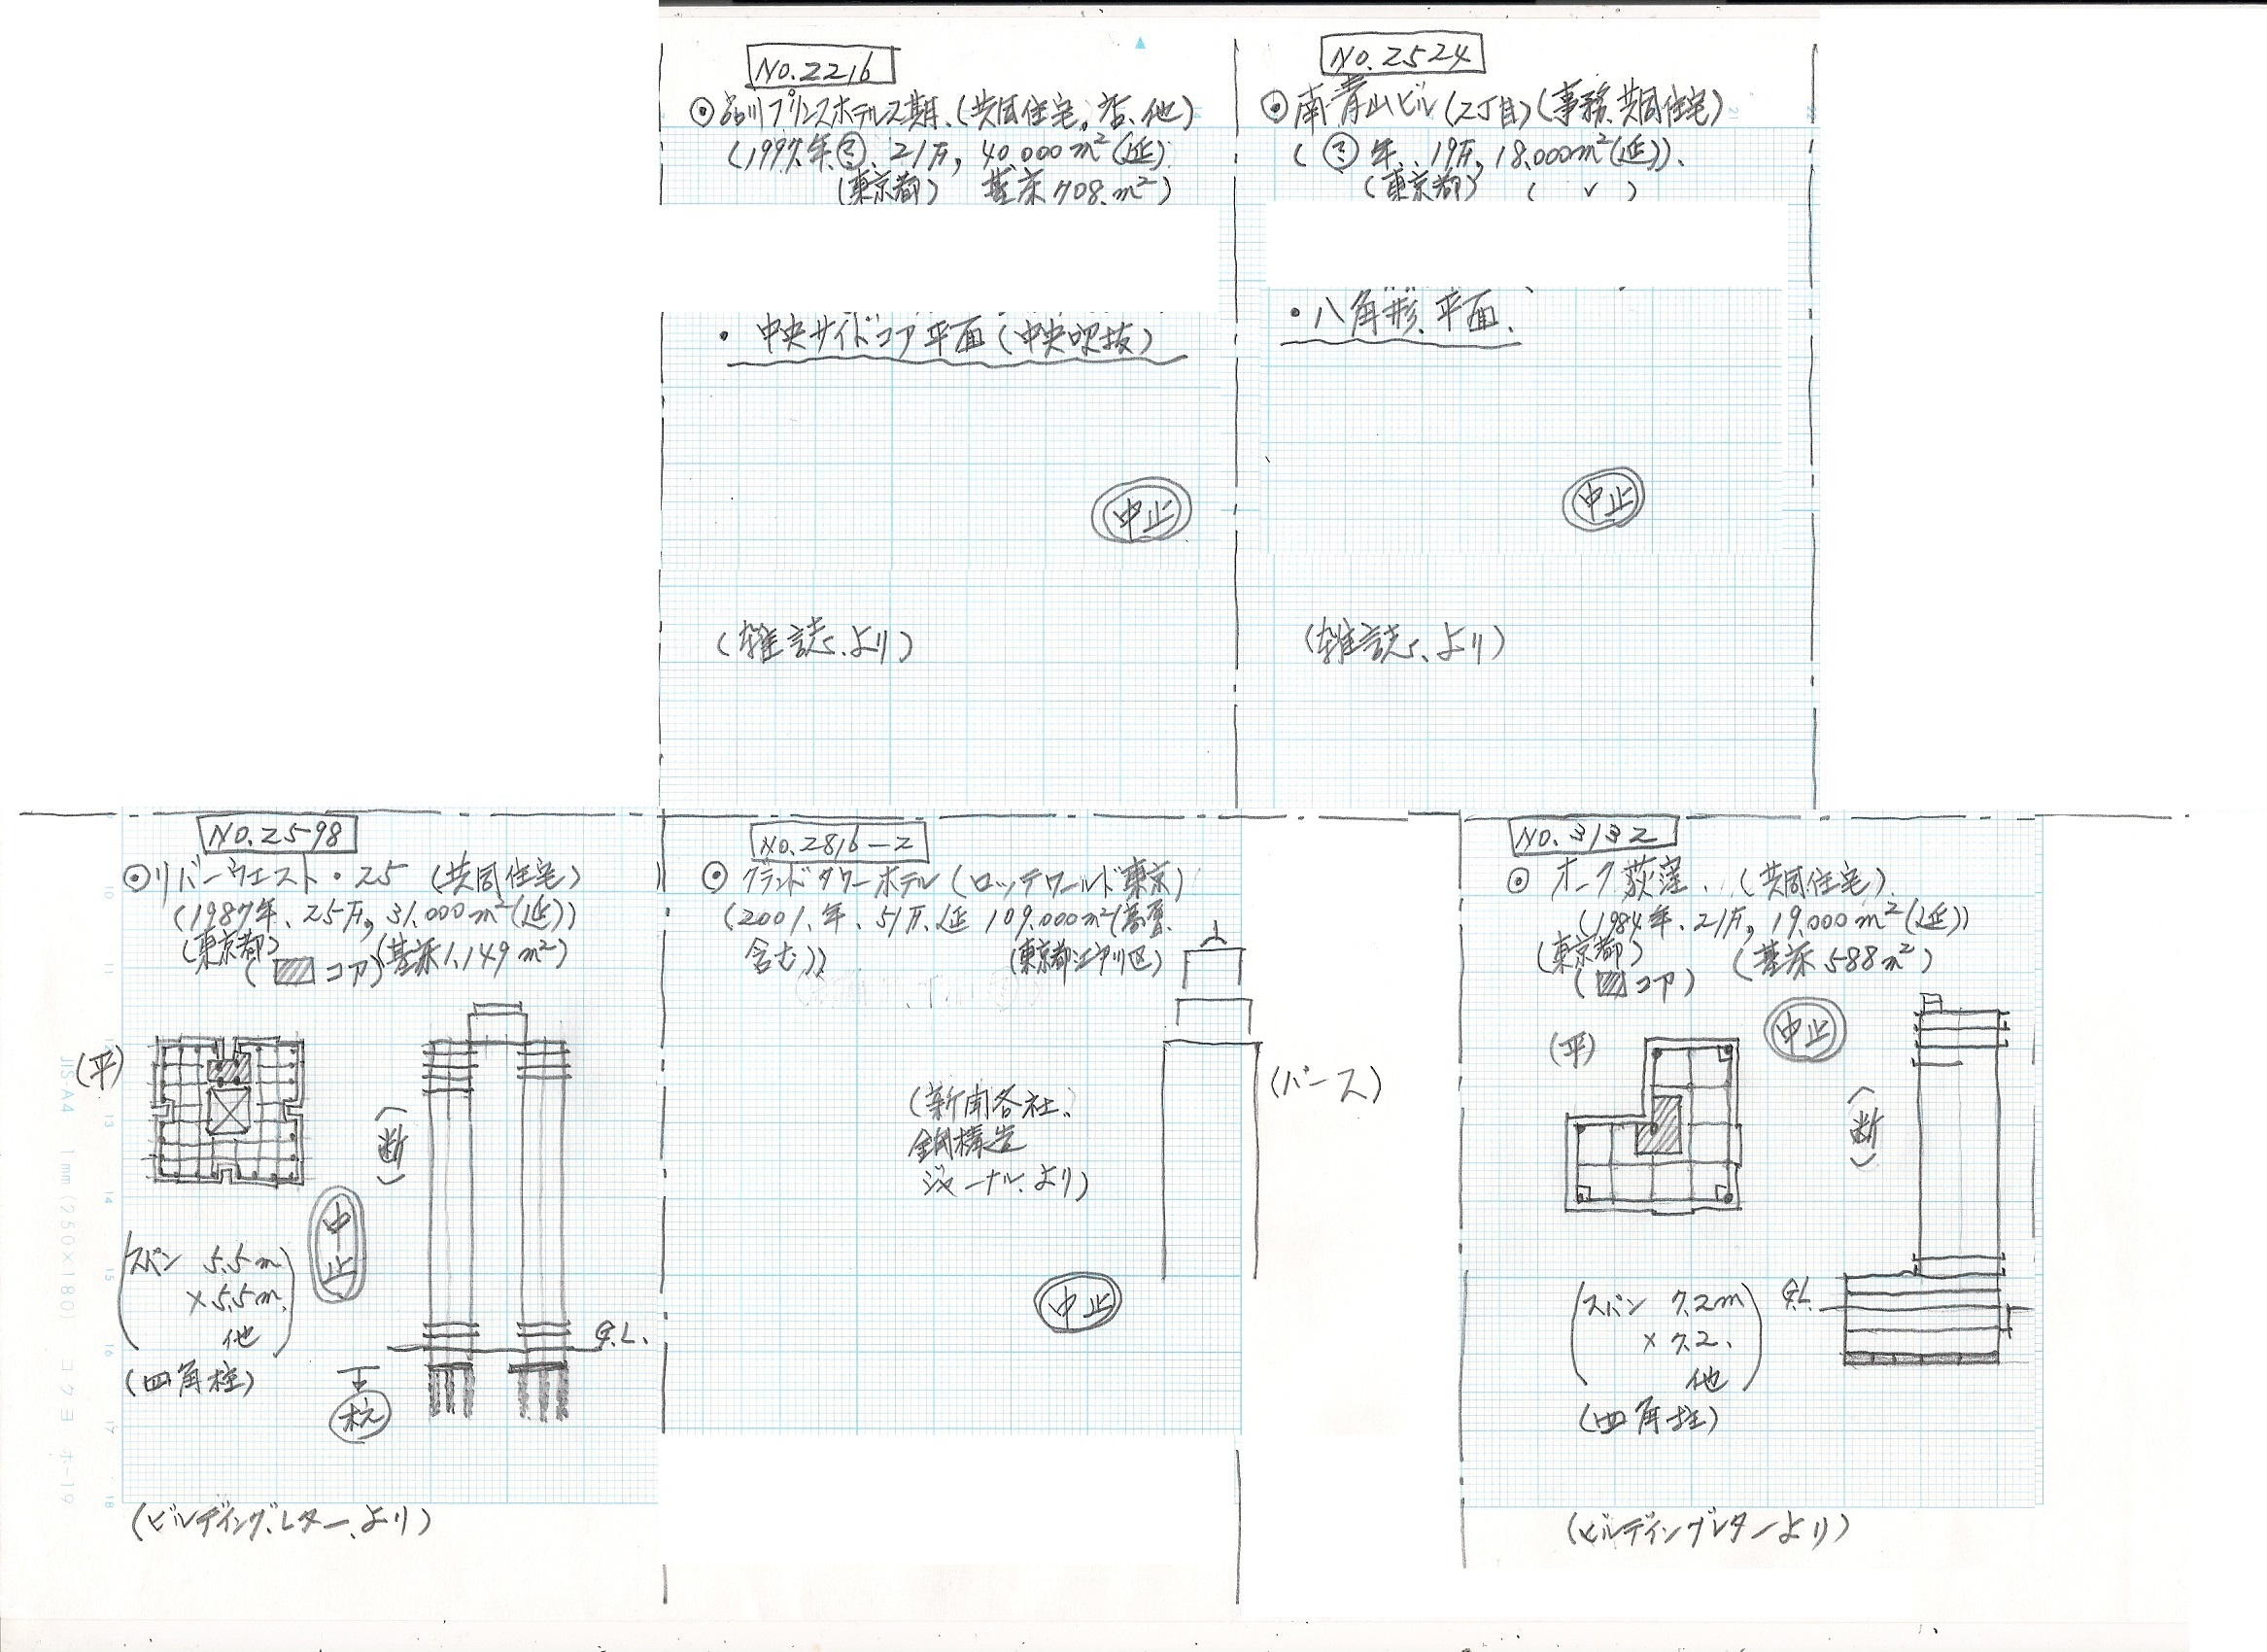 NO.2216
◎品川プリンスホテルス期.(共同住宅。店、他)
(1997.年.㋯、21F, 40,000m²(延)
(東京都) 基床708.m²)
・中央サイドコア平面(中央吹抜)
中止
(雑誌、より)
NO.2524
◎南青山ビル(2丁目)(事務.共同住宅)
年、19F, 18,000m²(延))、
(東京都)
・八角形、平面、
中止
(雑誌、より)
NO.2598
◎リバーウエスト・25 (共同住宅)
(1987年、25F, 31,000m²(延))
(東京都) (基床1,149m²)
(コア)
(平)
(断)
中止
(スパン 5.5m
×5.5m.
他)
(四角柱)
G.L.
杭
(ビルディング.レター、より)
NO.2816-2
◎グランドタワーホテル(ロッテワールド東京)
(2001.年、51F、延 109,000m²
含む))
(東京都江戸川区)
(新聞各社、
鋼構造
ジャーナル、より)
(パース)
中止
NO.3132
◎オーク荻窪、(共同住宅)
(1984年、21F, 19,000m²(延))
(東京都) (基床588m²)
(コア)
中止
(平)
(断)
(スパン 7.2m
×7.2.
他)
(四角柱)
G.L.
(ビルディングレターより)
JIS A4 1mm (250×180) コクヨ ホ-19